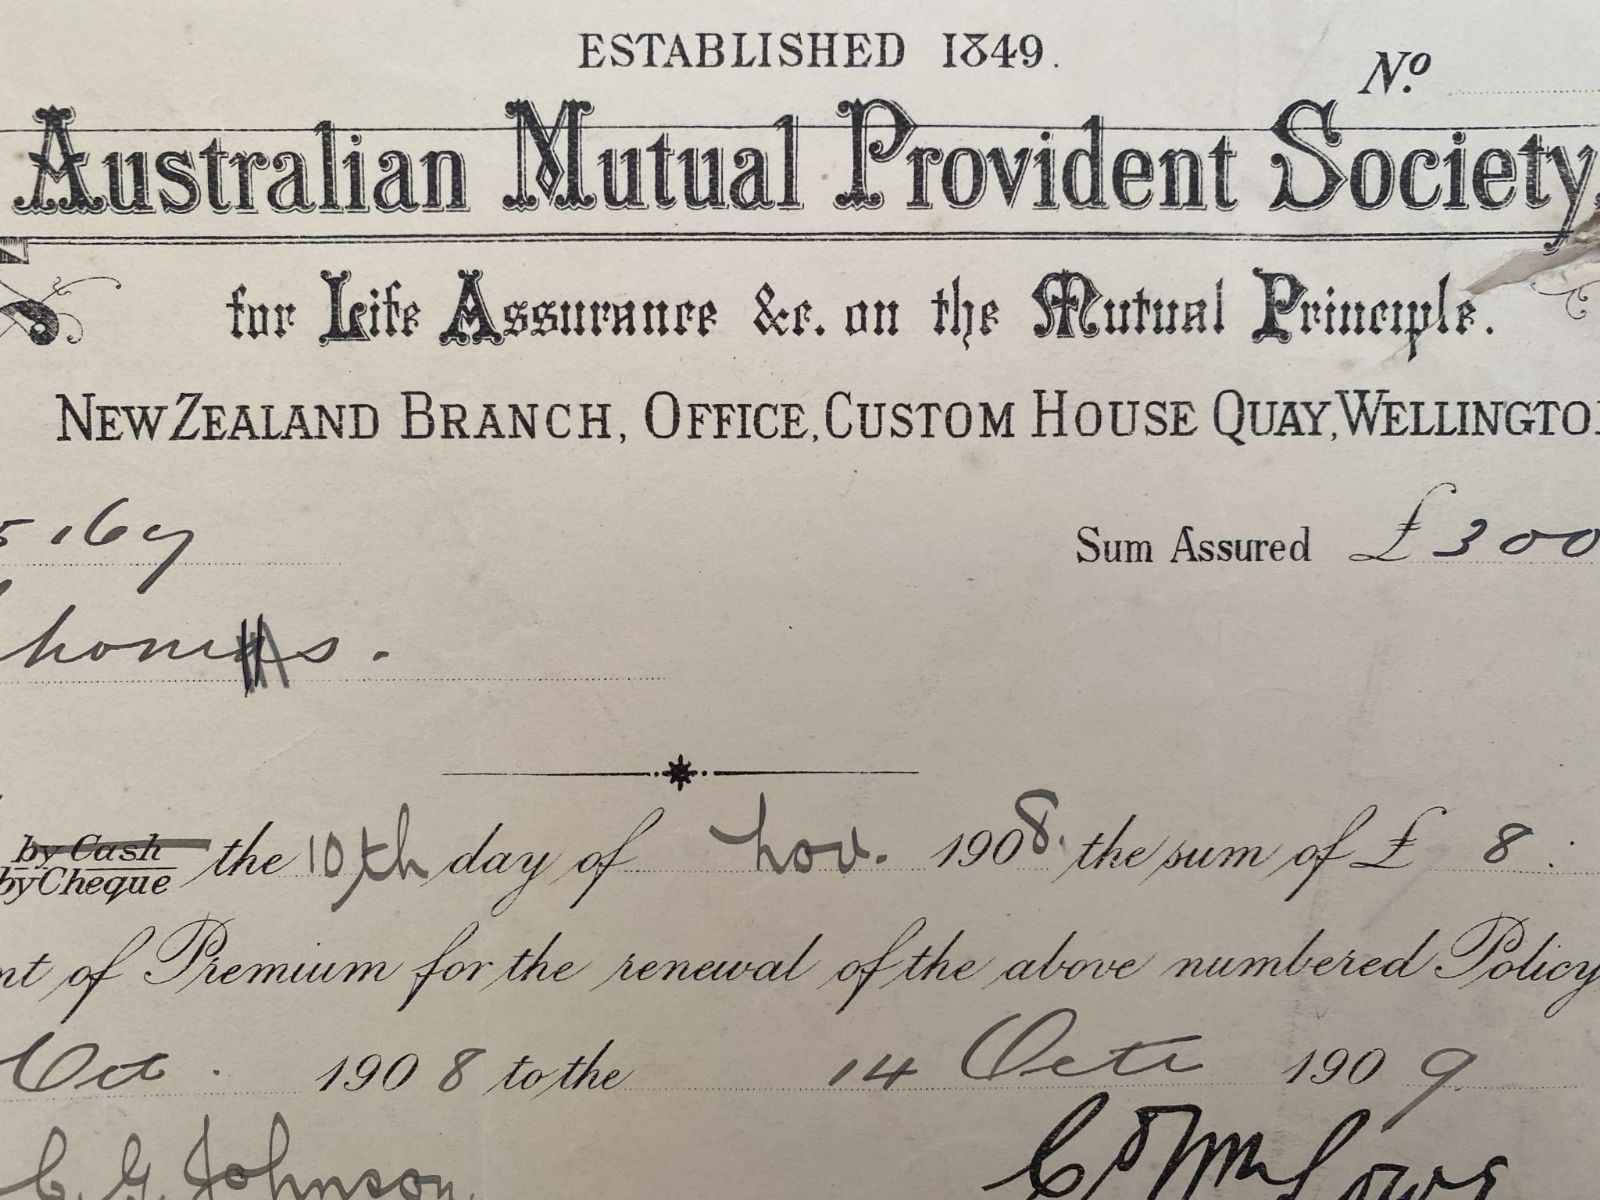 ESTABLISHED 1849.
No.
Australian Mutual Provident Society,
for Life Assurance &c. on the Mutual Principle.
NEW ZEALAND BRANCH, OFFICE, CUSTOM HOUSE QUAY, WELLINGTON
5167
Sum Assured £300
Thomas.
by Cash
by Cheque
the 10th day of Nov. 1908. the sum of £ 8 :
nt of Premium for the renewal of the above numbered Policy
Oct. 1908 to the 14 Octr 1909
C. G. Johnson.
Lowe